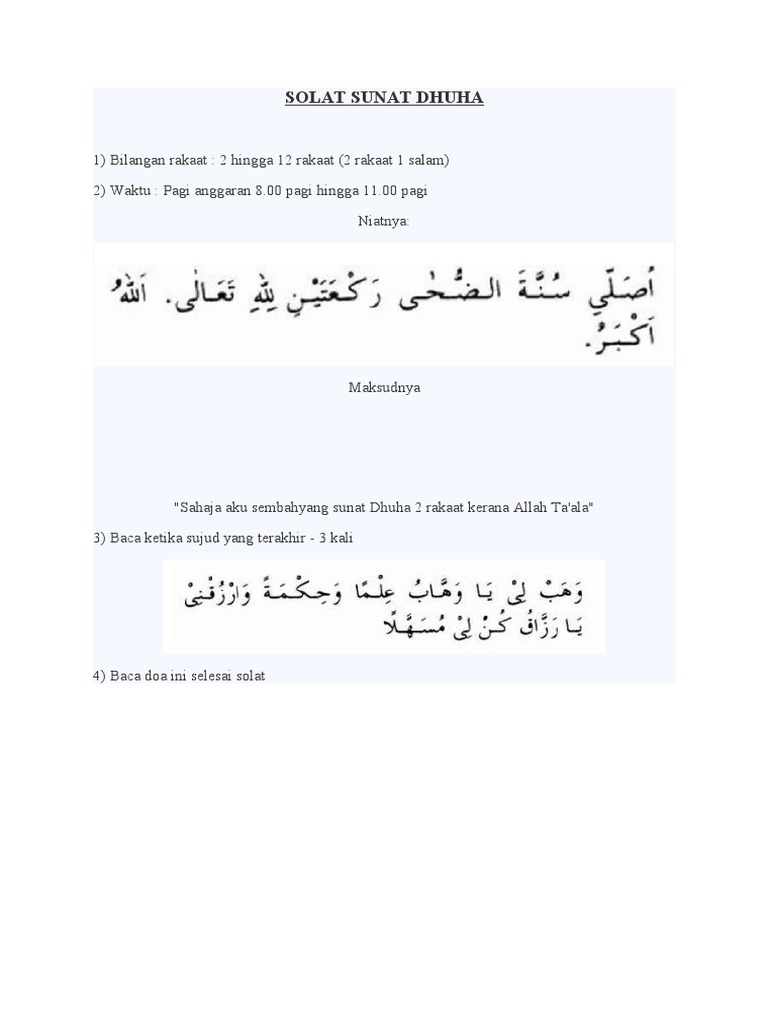 SOLAT SUNAT DHUHA
1) Bilangan rakaat : 2 hingga 12 rakaat (2 rakaat 1 salam)
2) Waktu : Pagi anggaran 8.00 pagi hingga 11.00 pagi
Niatnya:
اُصَلِّي سُنَّةَ الضُّحٰى رَكْعَتَيْنِ لِلّٰهِ تَعَالٰى. اَللّٰهُ
اَكْبَرُ.
Maksudnya
"Sahaja aku sembahyang sunat Dhuha 2 rakaat kerana Allah Ta'ala"
3) Baca ketika sujud yang terakhir - 3 kali
وَهَبْ لِيْ يَا وَهَّابُ عِلْمًا وَحِكْمَةً وَارْزُقْنِيْ
يَا رَزَّاقُ كُنْ لِيْ مُسَهَّلًا
4) Baca doa ini selesai solat